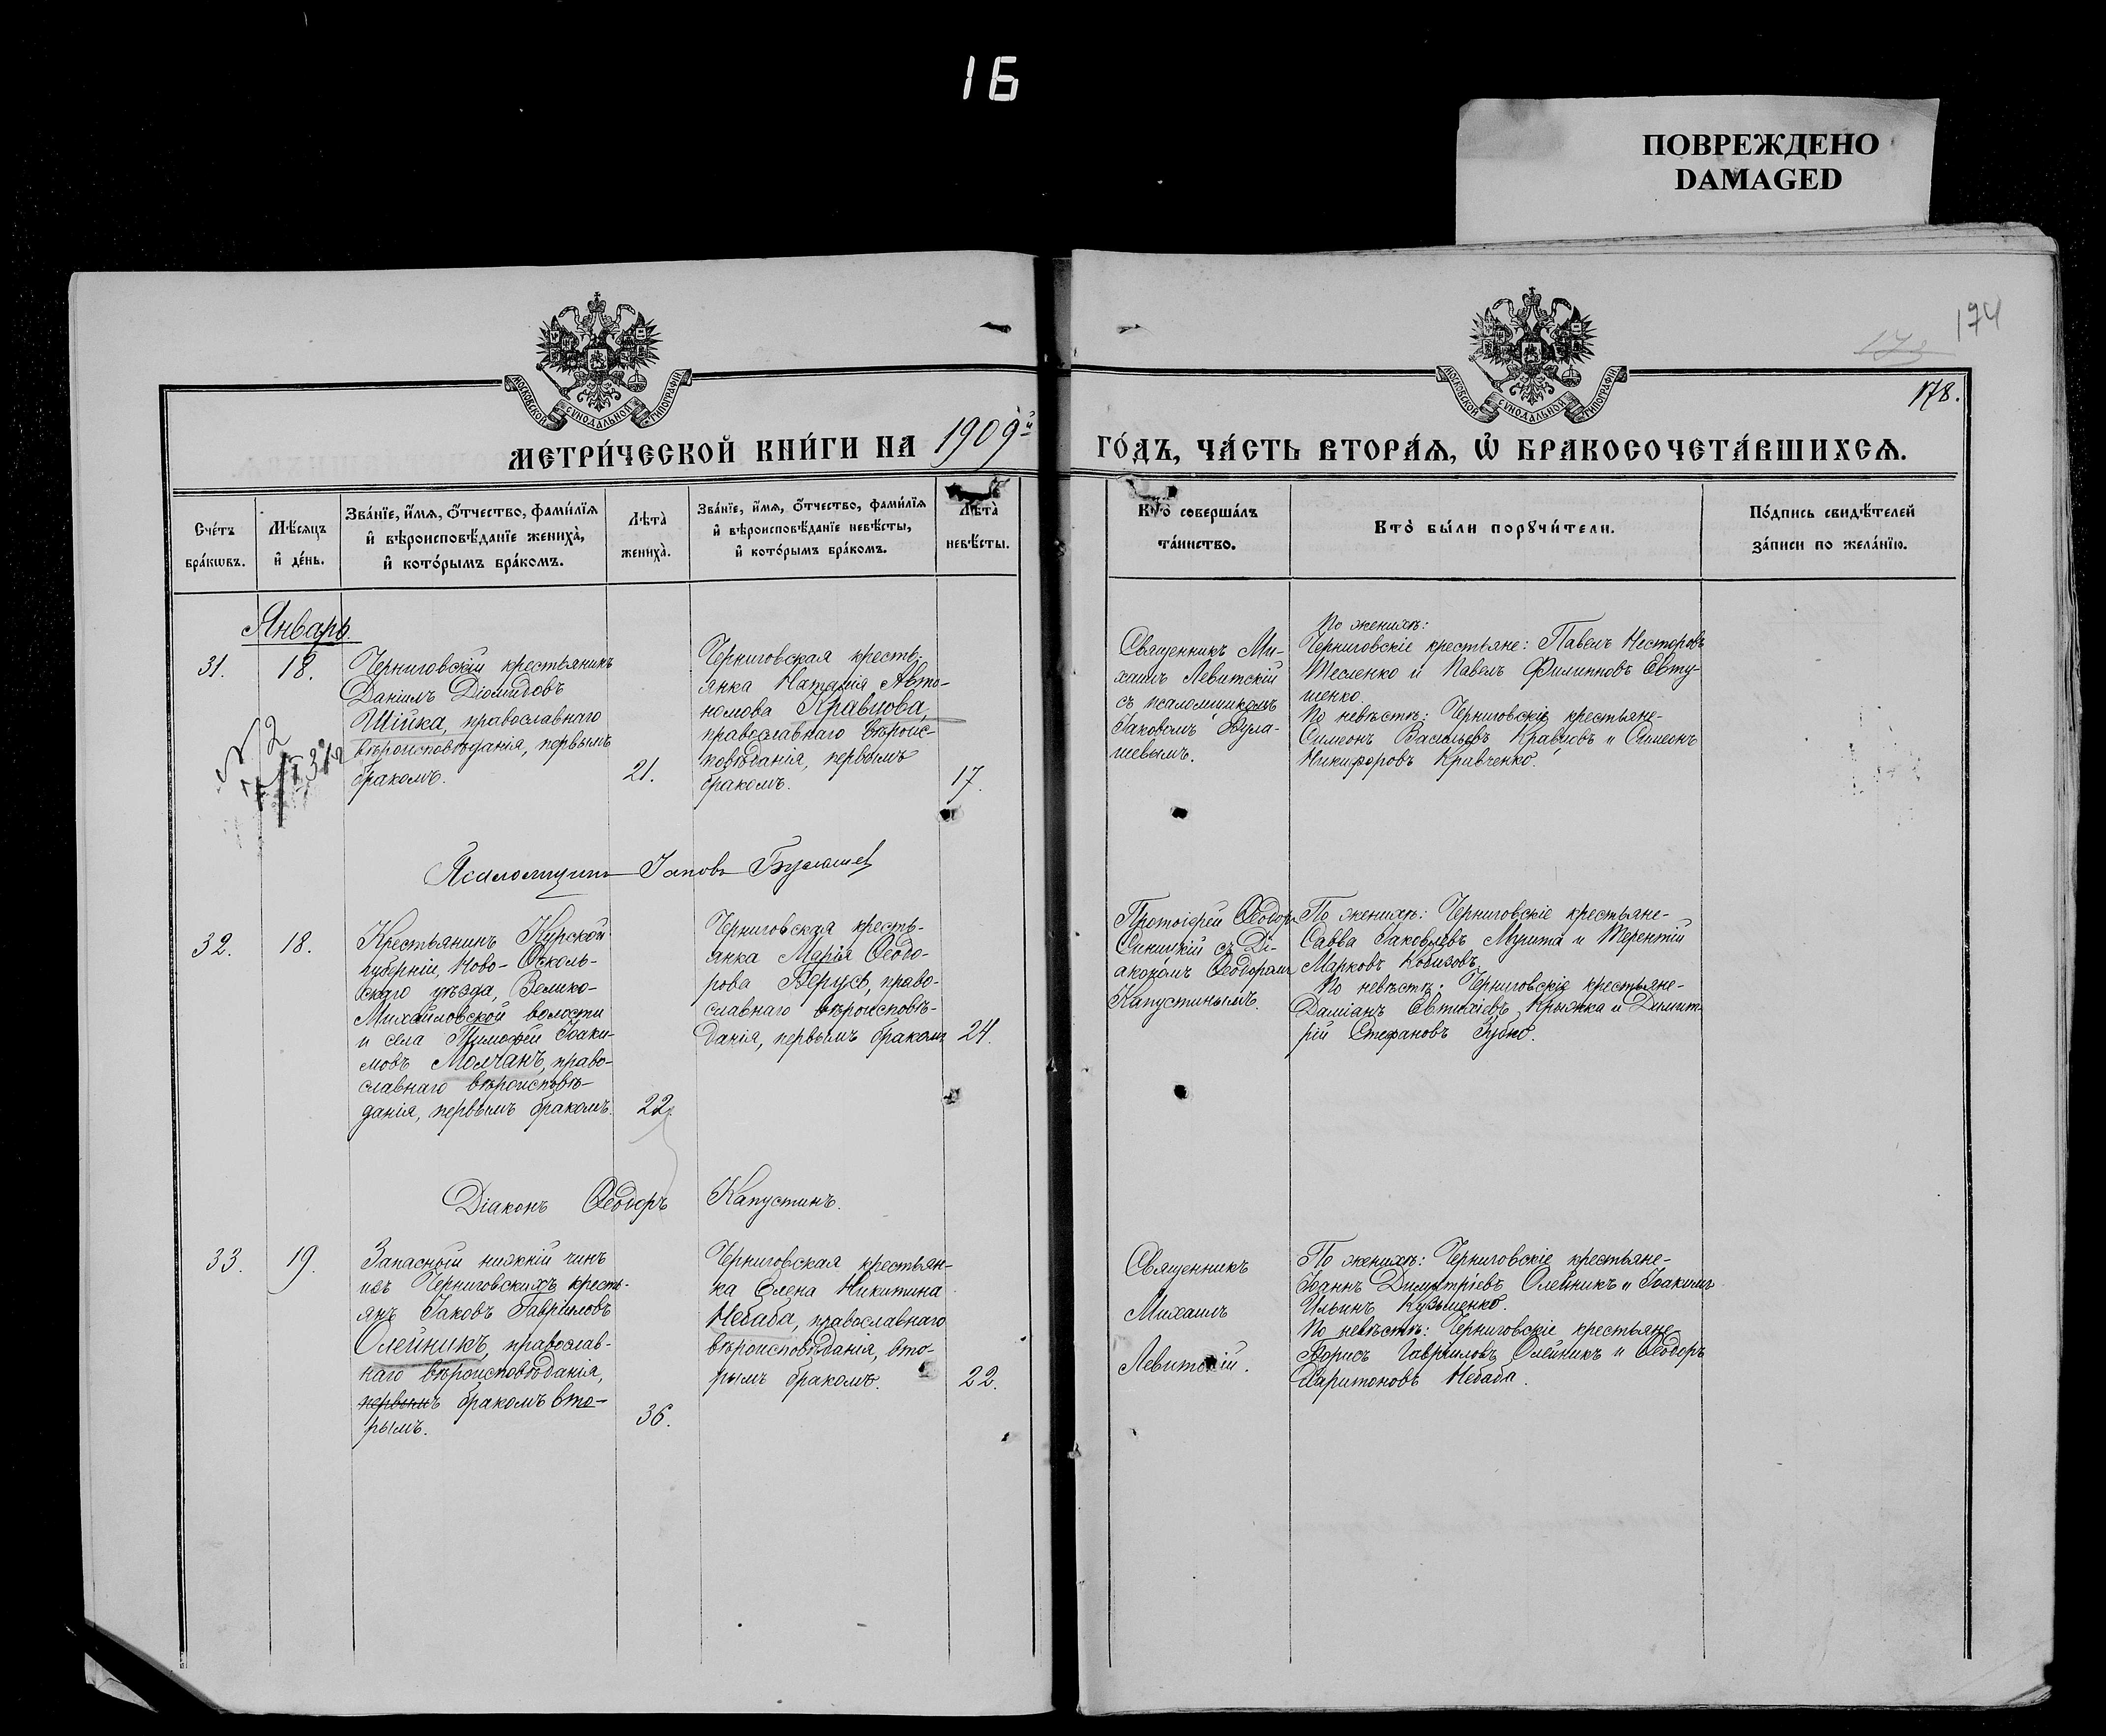 16
ПОВРЕЖДЕНО
DAMAGED
174
178.
МОСКОВСКОЙ СѴНОДАЛЬНОЙ ТИПОГРАФІИ
МОСКОВСКОЙ СѴНОДАЛЬНОЙ ТИПОГРАФІИ
МЕТРИ́ЧЕСКОЙ КНИ́ГИ НА 1909й ГО́ДЪ, ЧА́СТЬ ВТОРА́Ѧ, Ѽ БРАКОСОЧЕТА́ВШИХСѦ.
Сче́тъ
бра́кѡвъ.
Мѣ́сѧцъ
и҆ де́нь.
Зва́нїе, и҆́мѧ, ѻ҆́тчество, фами́лїѧ
и҆ вѣроисповѣ́данїе жениха̀,
и҆ кото́рымъ бра́комъ.
Лѣта̀
жениха̀.
Зва́нїе, и҆́мѧ, ѻ҆́тчество, фами́лїѧ
и҆ вѣроисповѣ́данїе невѣ́сты,
и҆ кото́рымъ бра́комъ.
Лѣта̀
невѣ́сты.
Кто̀ соверша́лъ
та́инство.
Кто̀ бы́ли порꙋчи́тели.
По́дпись свидѣ́телей
за́писи по жела́нїю.
Январь
31.
18.
Черниговскій крестьянинъ
Даніилъ Діомидовъ
Шійка, православнаго
вѣроисповѣданія, первымъ
бракомъ.
21.
Черниговская кресть-
янка Наталія Авто-
номова Кравцова,
православнаго вѣроис-
повѣданія, первымъ
бракомъ.
17.
Священникъ Ми-
хаилъ Левитскій
съ псаломщикомъ
Іаковомъ Була-
шевымъ.
По женихѣ:
Черниговскіе крестьяне: Павелъ Несторовъ
Тесленко и Павелъ Филипповъ Евту-
шенко.
По невѣстѣ: Черниговскіе крестьяне-
Симеонъ Васильевъ Кравцовъ и Симеонъ
Никифоровъ Кривченко.
Псаломщикъ Іаковъ Булашев
32.
18.
Крестьянинъ Курской
губерніи, Ново-Осколь-
скаго уѣзда, Велико-
Михайловской волости
и села Тимофей Іоаки-
мовъ Молчанъ, право-
славнаго вѣроисповѣ-
данія, первымъ бракомъ.
22.
Черниговская кресть-
янка Марія Ѳеодо-
рова Верусь, право-
славнаго вѣроисповѣ-
данія, первымъ бракомъ
24.
Протоіерей Ѳеодоръ
Синицкій съ Ді-
акономъ Ѳеодоромъ
Капустинымъ.
По женихѣ: Черниговскіе крестьяне-
Савва Іаковлевъ Мурита и Терентій
Марковъ Кобизовъ.
По невѣстѣ: Черниговскіе крестьяне-
Даміанъ Евтихіевъ Крыжка и Димит-
рій Стефановъ Зубко.
Діаконъ Ѳеодоръ Капустинъ.
33.
19.
Запасный нижній чинъ
изъ Черниговскихъ кресть-
янъ Іаковъ Гавріиловъ
Олейникъ, православ-
наго вѣроисповѣданія,
первымъ бракомъ вто-
рымъ.
36.
Черниговская крестьян-
ка Елена Никитина
Небаба, православнаго
вѣроисповѣданія, вто-
рымъ бракомъ.
22.
Священникъ
Михаилъ
Левитскій.
По женихѣ: Черниговскіе крестьяне-
Іоаннъ Димитріевъ Олейникъ и Іоакимъ
Ильинъ Кузьменко.
По невѣстѣ: Черниговскіе крестьяне-
Борисъ Гавриловъ Олейникъ и Ѳеодоръ
Харитоновъ Небаба.